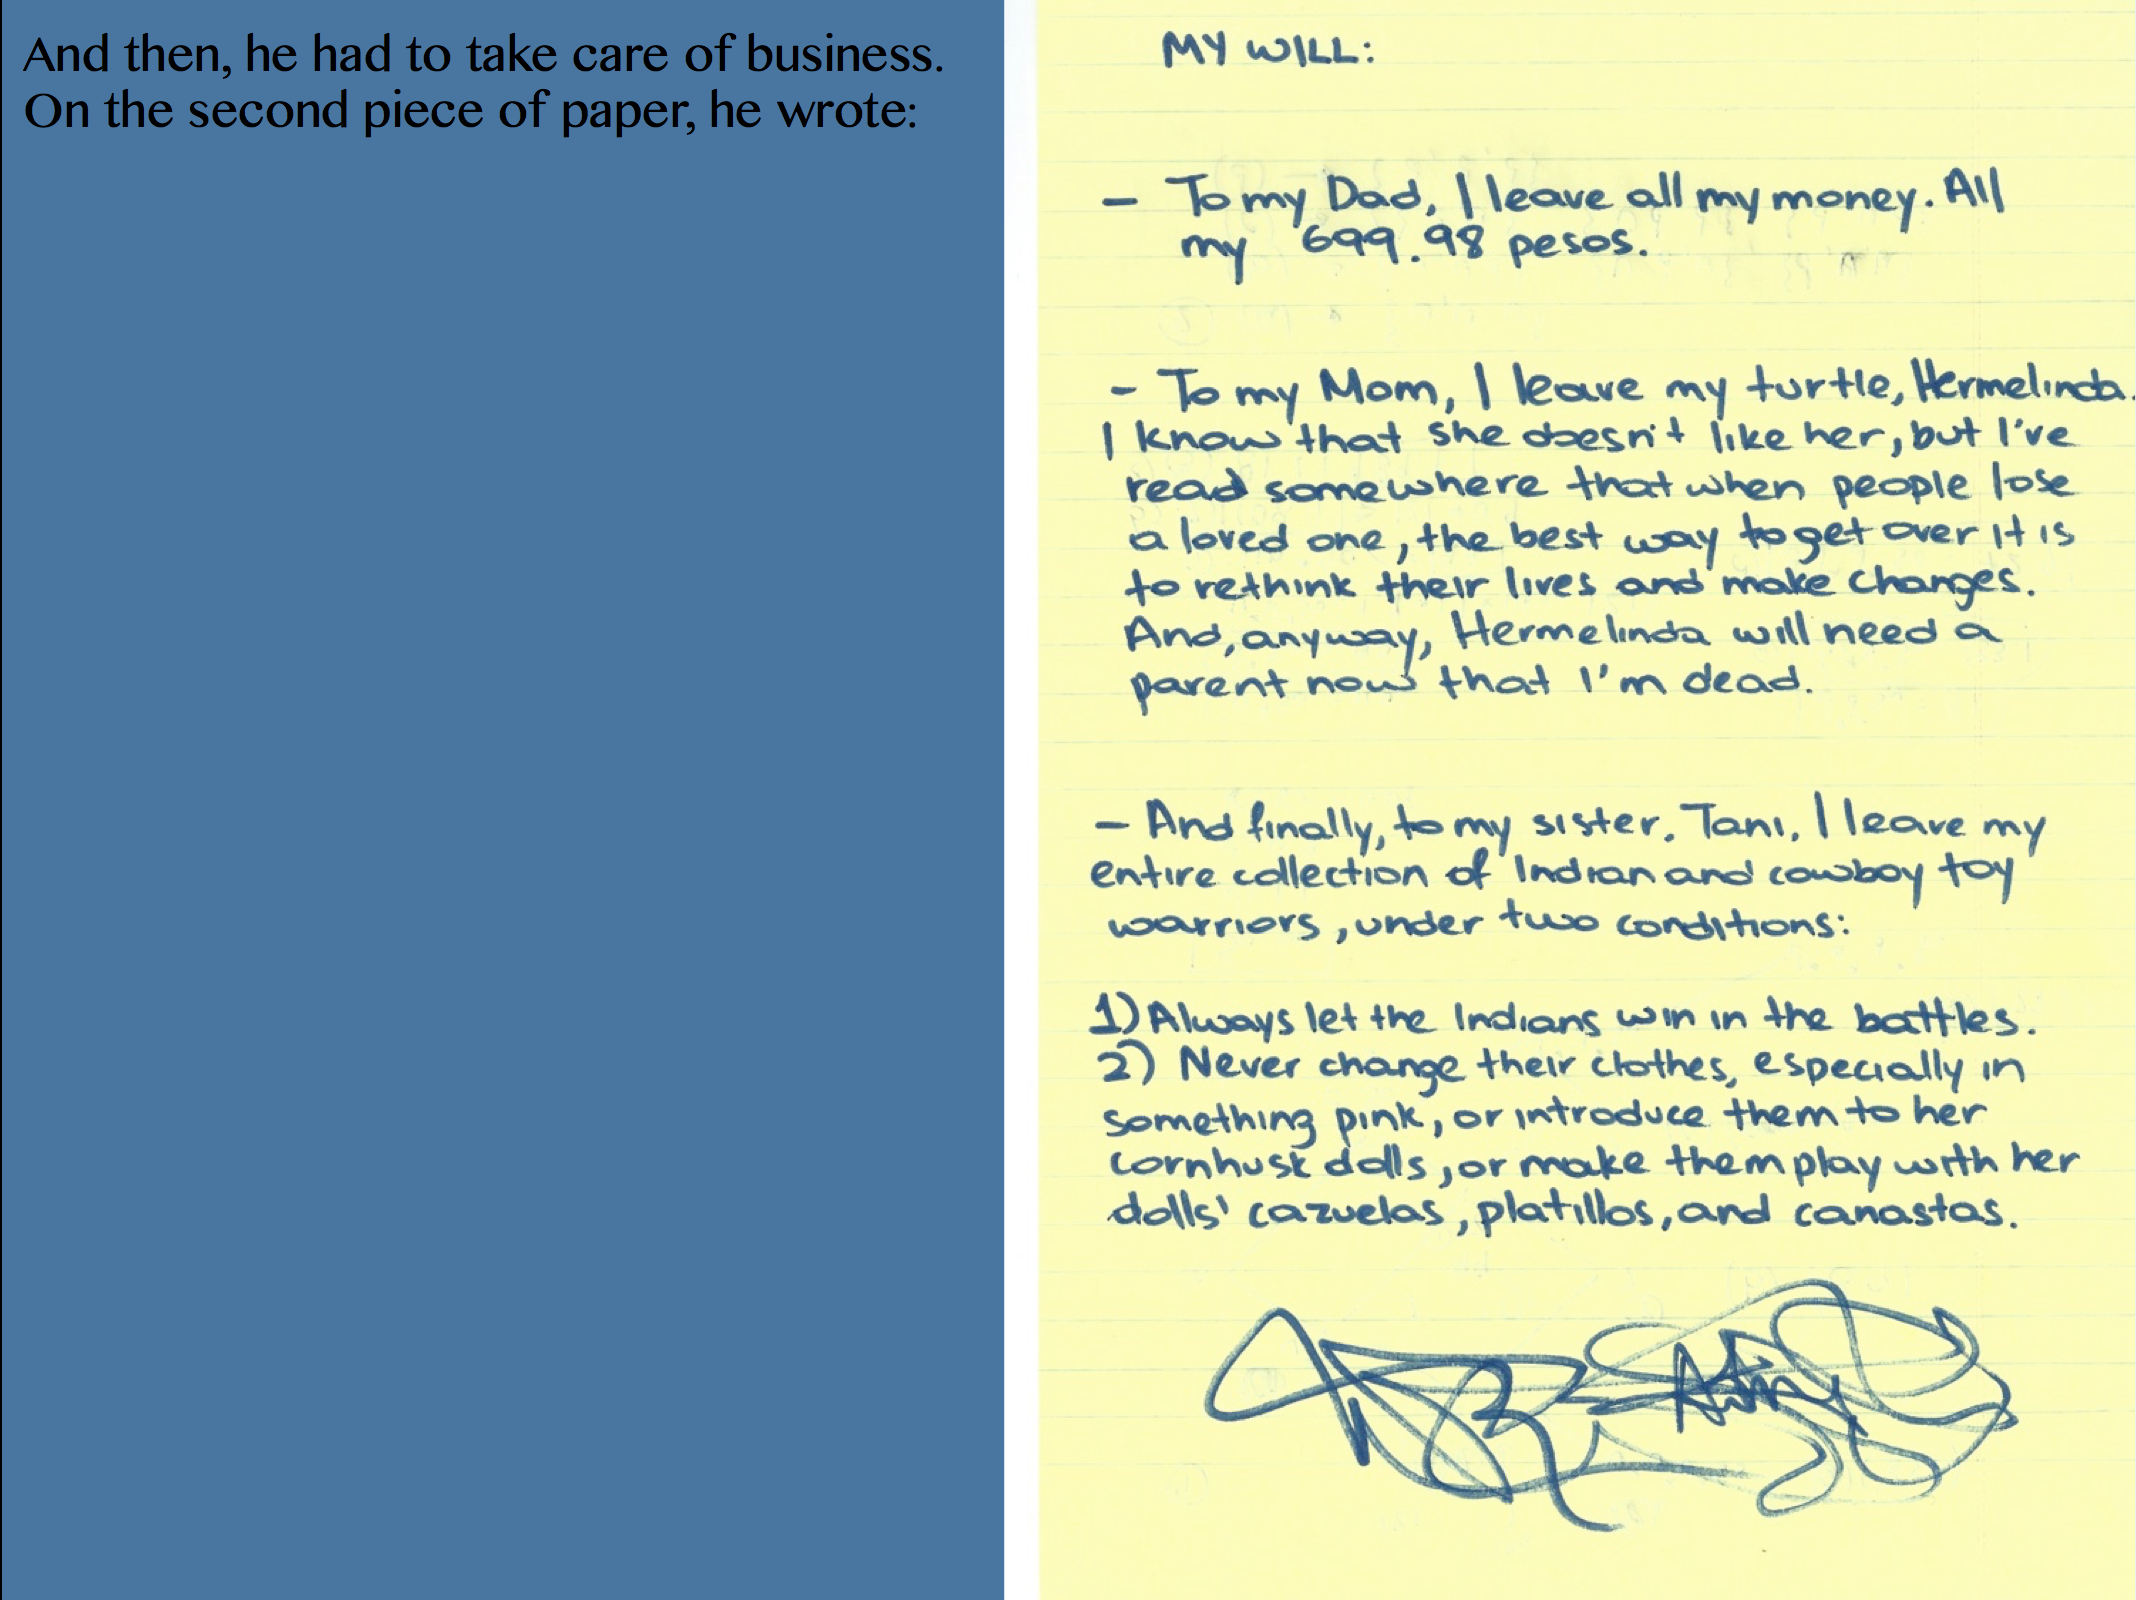 And then, he had to take care of business.
On the second piece of paper, he wrote:
MY WILL:
- To my Dad, I leave all my money. All
my 699.98 pesos.
- To my Mom, I leave my turtle, Hermelinda.
I know that she doesn't like her, but I've
read somewhere that when people lose
a loved one, the best way to get over it is
to rethink their lives and make changes.
And, anyway, Hermelinda will need a
parent now that I'm dead.
- And finally, to my sister, Tani, I leave my
entire collection of Indian and cowboy toy
warriors, under two conditions:
1) Always let the Indians win in the battles.
2) Never change their clothes, especially in
something pink, or introduce them to her
cornhusk dolls, or make them play with her
dolls' cazuelas, platillos, and canastas.